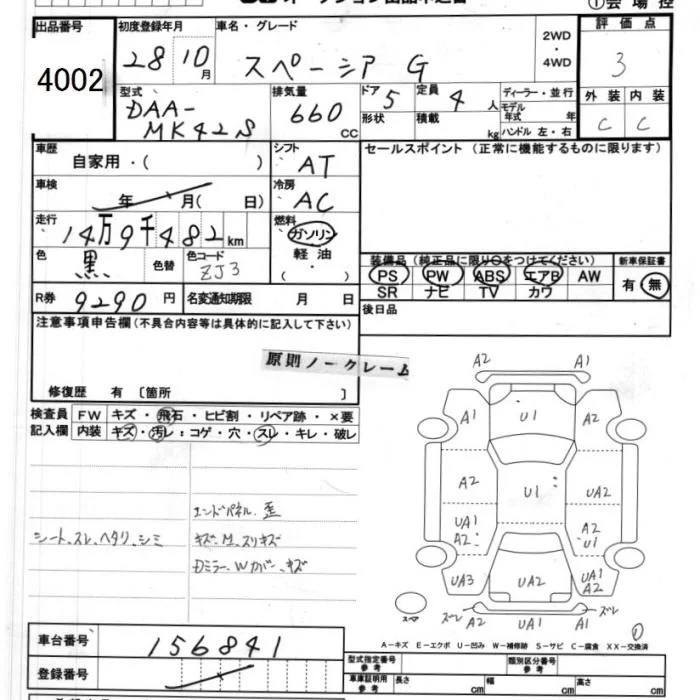 ①会 場 控
出品番号 初度登録年月 車名・グレード 2WD・4WD 評 価 点
4002 28 10月 スペーシア G 3
型式 排気量 ドア 定員 ディーラー・並行 外 装 内 装
DAA-MK42S 660 cc 5 4 人 モデル年式 年 C C
形状 積載 kg ハンドル 左・右
車歴 シフト セールスポイント (正常に機能するものに限ります)
自家用・( ) AT
車検 冷房
年 月( 日) AC
走行 燃料
14万9千482km ガソリン
軽 油
( ・ )
色 色替 色コード
黒 ZJ3
装備品 (純正品に限り○をつけてください) 新車保証書
PS PW ABS エアB AW 有 無
SR ナビ TV カワ
R券 9290 円 名変通知期限 月 日
後日品
注意事項申告欄(不具合内容等は具体的に記入して下さい)
原則ノークレーム
修復歴 有 〔箇所 〕
検査員 FW キズ・飛石・ヒビ割・リペア跡・×要
記入欄 内装 キズ・汚レ・コゲ・穴・スレ・キレ・破レ
エンドパネル、歪
シート、スレ、ヘタリ、シミ キズ、M、スリキズ
Dミラー、Wカバー、キズ
A2 A1
A1 U1 A1
A2 U1 UA2
UA1 A2
A2 U1
UA3 UA2 UA1
A2
ズレ A2 UA1 A1 ズレ
スペア
①
A-キズ E-エクボ U-凹み W-補修跡 S-サビ C-腐食 XX-交換済
車台番号 156841
登録番号
型式指定番号 参考 類別区分番号 参考
車庫証明用 参考 長さ cm 幅 cm 高さ cm